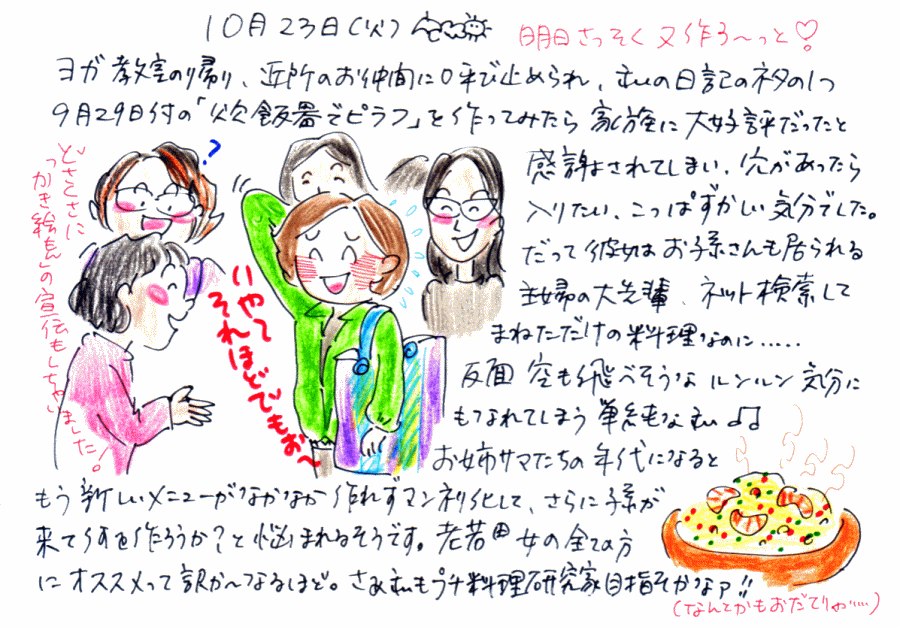 10月23日(火)
明日さっそく又作ろ〜っと♡!
ヨガ教室の帰り、近所のお仲間に呼び止められ、むぃの日記のネタの1つ
9月29日付の「炊飯器でピラフ」を作ってみたら家族に大好評だったと
感謝されてしまい、穴があったら
入りたい、こっぱずかしい気分でした。
だって彼女はお孫さんも居られる
主婦の大先輩、ネット検索して
まねただけの料理なのに……
反面 空も飛べそうなルンルン気分に
もなれてしまう単純なむぃ♫
お姉サマたちの年代になると
もう新しいメニューがなかなか作れずマンネリ化して、さらに子孫が
来て何を作ろうか?と悩まれるそうです。老若男女の全ての方
にオススメって訳か〜なるほど。さぁむぃもプチ料理研究家目指そかなァ!!
(なんてかもおだてりゃ……)
?
どさくさに
「らっかき絵もん」の宣伝もしちゃいました!
いやて
それほどでもぉ〜